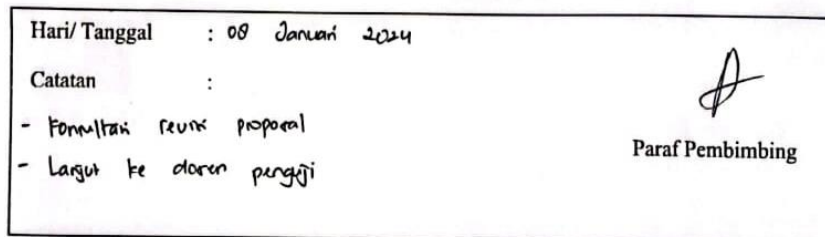 Hari/ Tanggal : 08 Januari 2024
Catatan :
- Konsultasi revisi proposal
- Lanjut ke dosen penguji
Paraf Pembimbing